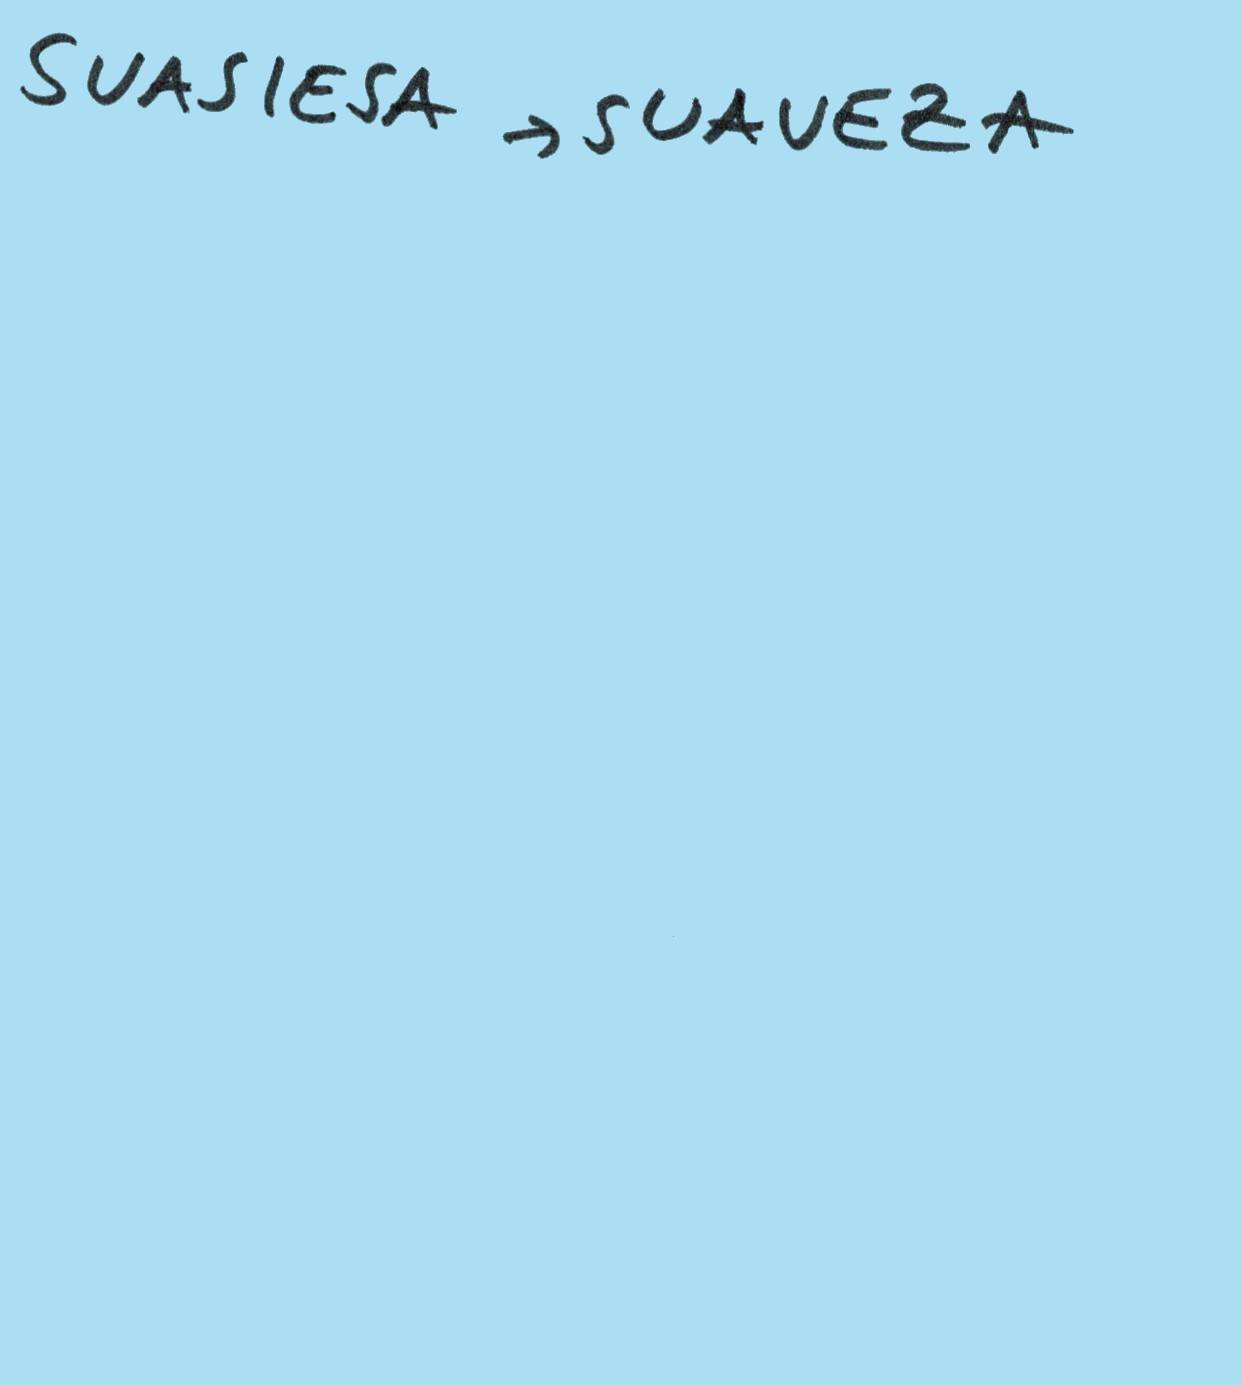 SUASIESA → SUAVEZA